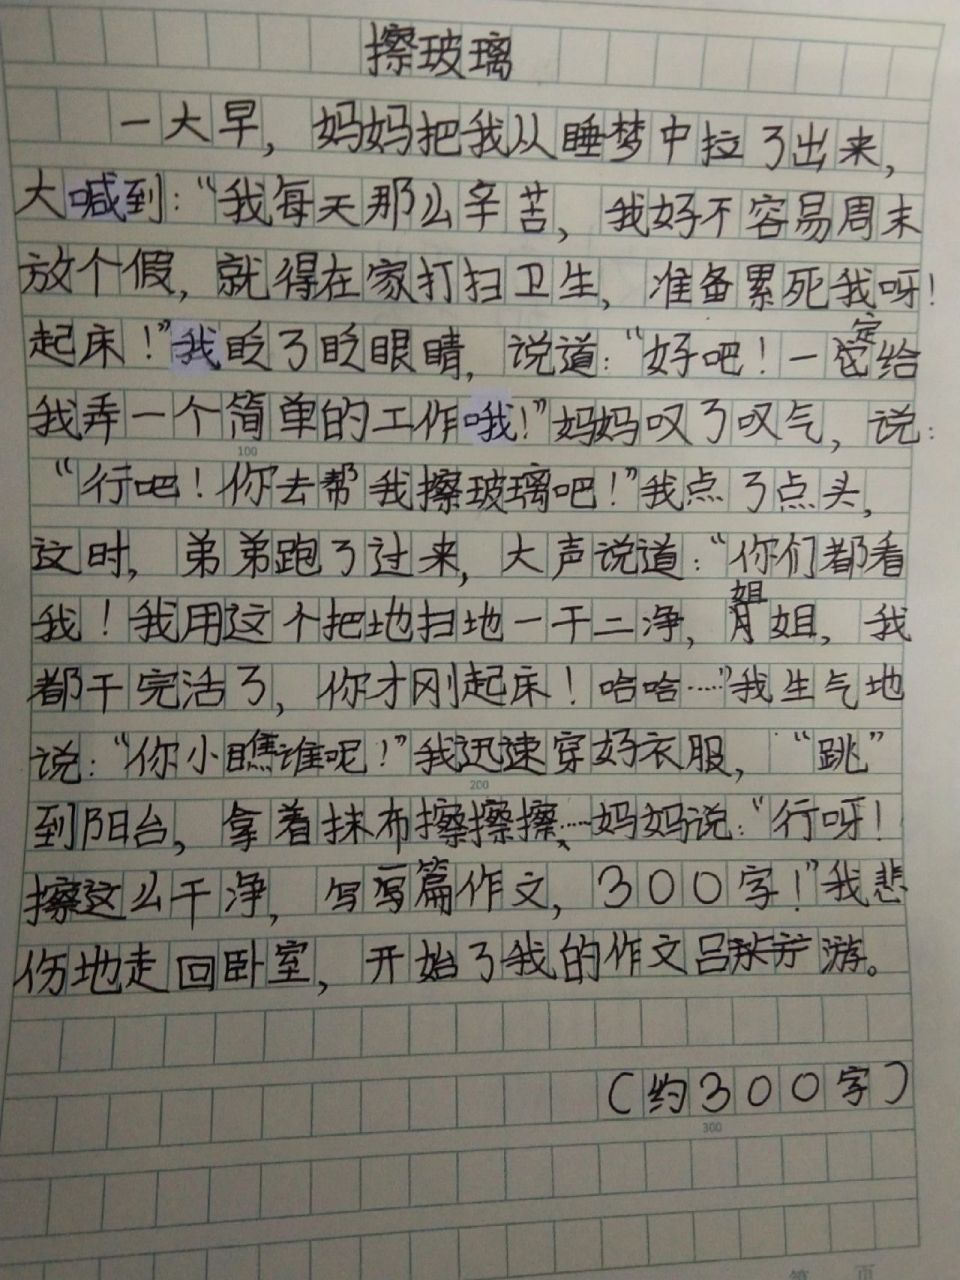 擦玻璃
一大早，妈妈把我从睡梦中拉了出来，
大喊到：“我每天那么辛苦，我好不容易周末
放个假，就得在家打扫卫生，准备累死我呀！
起床！”我眨了眨眼睛，说道：“好吧！一定给
我弄一个简单的工作哦！”妈妈叹了叹气，说：
“行吧！你去帮我擦玻璃吧！”我点了点头，
这时，弟弟跑了过来，大声说道：“你们都看
我！我用这个把地扫地一干二净，姐姐，我
都干完活了，你才刚起床！哈哈……”我生气地
说：“你小瞧谁呢！”我迅速穿好衣服，“跳”
到阳台，拿着抹布擦擦擦……妈妈说：“行呀！
擦这么干净，写写篇作文，300字！”我悲
伤地走回卧室，开始了我的作文吕游。
（约300字）
100
200
300
第 页